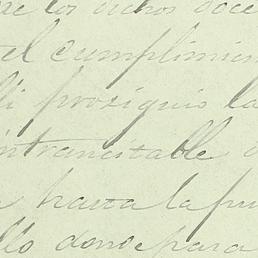 los dichos doce
el cumplimien
li prosiguio la
intransitable
hasta la pu
llo donde para